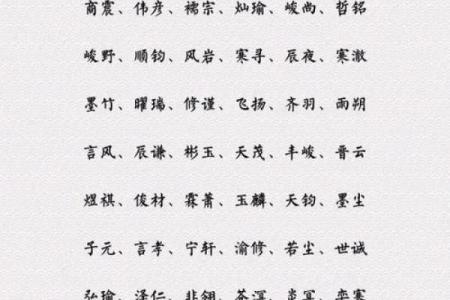 商震、伟彦、儒宗、灿瑜、峻尚、哲铭
峻野、顺钧、风岩、寒寻、辰夜、寒澈
墨竹、曜瑞、修谨、飞扬、齐羽、雨朔
言风、辰谦、彬玉、天茂、丰峻、晋云
煜祺、俊材、霖萧、玉麟、天钧、墨尘
子元、言孝、宁轩、渝修、若尘、世诚
弘瑜、泽仁、非翎、苍溟、炎冥、奕寒